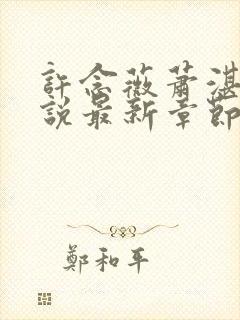 許念薇蕭湛
說最新章節
鄭和平